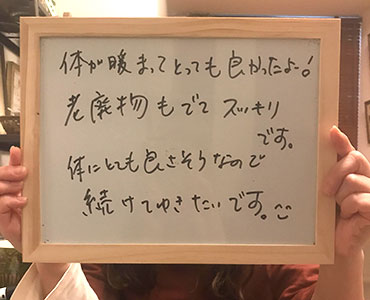 体が暖まってとっても良かったよー!
老廃物もでてスッキリ
です。
体にとても良さそうなので
続けてゆきたいです。